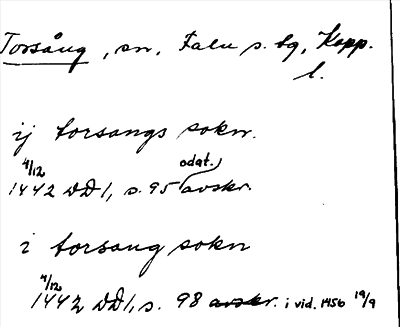 Torsång, sn, Falu s. bg, Kopp.
l.
ij torsangs sokn.
4/12 odat.
1442 DD 1, s. 95 avskr.
i torsang sokn
4/12
1442 DD 1, s. 98 avskr. i vid. 1456 19/9